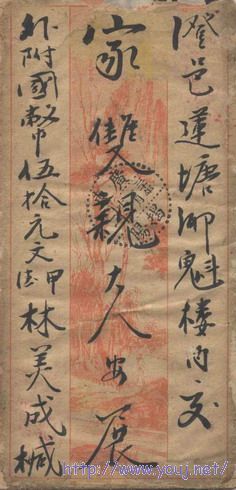 澄邑蓮塘鄉魁樓內交
家
雙親大人安展
外附國幣伍拾元文 甲 林美成械
http://www.youj.net/